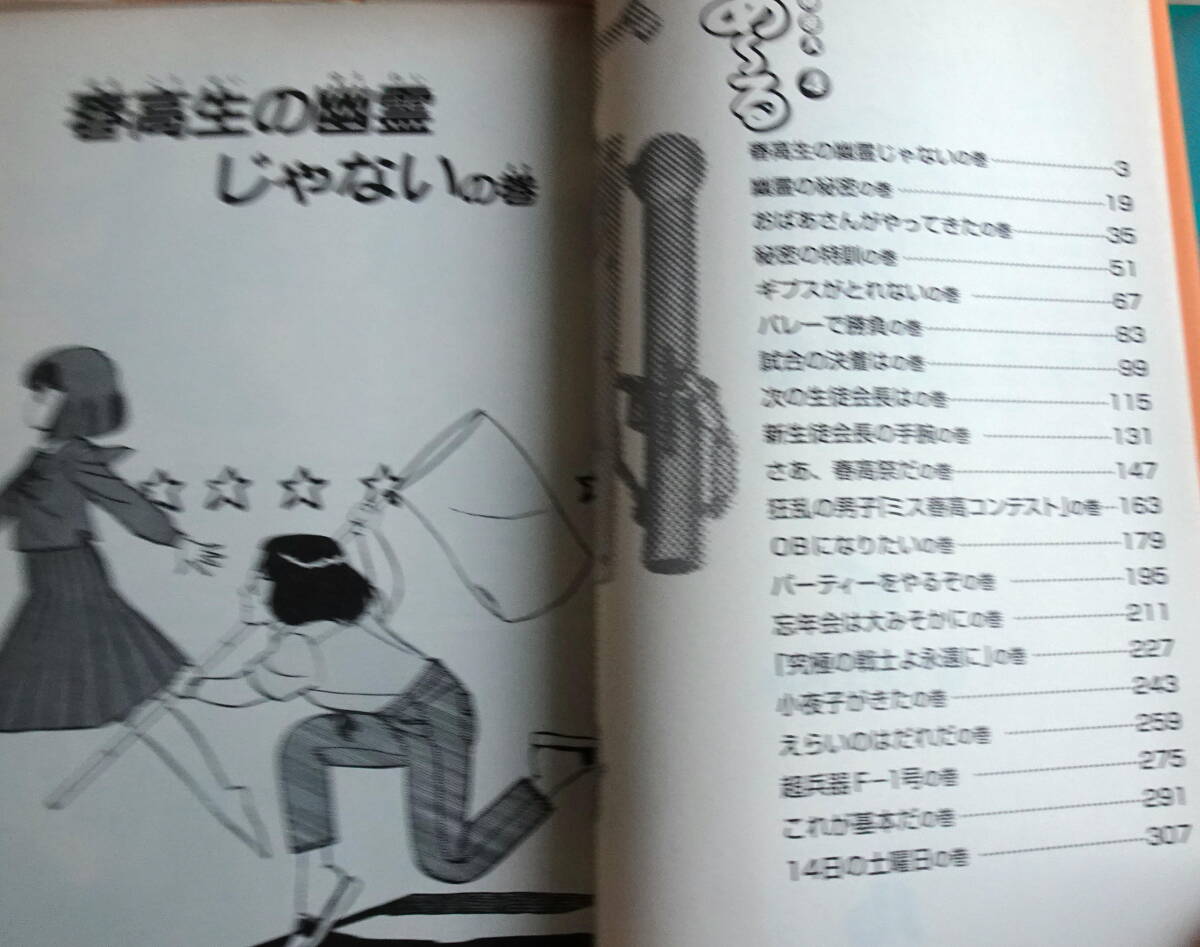 春高生の幽霊
じゃないの巻
める
春高生の幽霊じゃないの巻 3
幽霊の秘密の巻 19
おばあさんがやってきたの巻 35
秘密の特訓の巻 51
ギブスがとれないの巻 67
バレーで勝負の巻 83
試合の決着はの巻 99
次の生徒会長はの巻 115
新生徒会長の手腕の巻 131
さあ、春高祭だの巻 147
狂乱の男子「ミス春高コンテスト」の巻 163
OBになりたいの巻 179
パーティーをやるぞの巻 195
忘年会は大みそかにの巻 211
「究極の戦士よ永遠に」の巻 227
小夜子がきたの巻 243
えらいのはだれだの巻 259
超兵器F-1号の巻 275
これが基本だの巻 291
14日の土曜日の巻 307